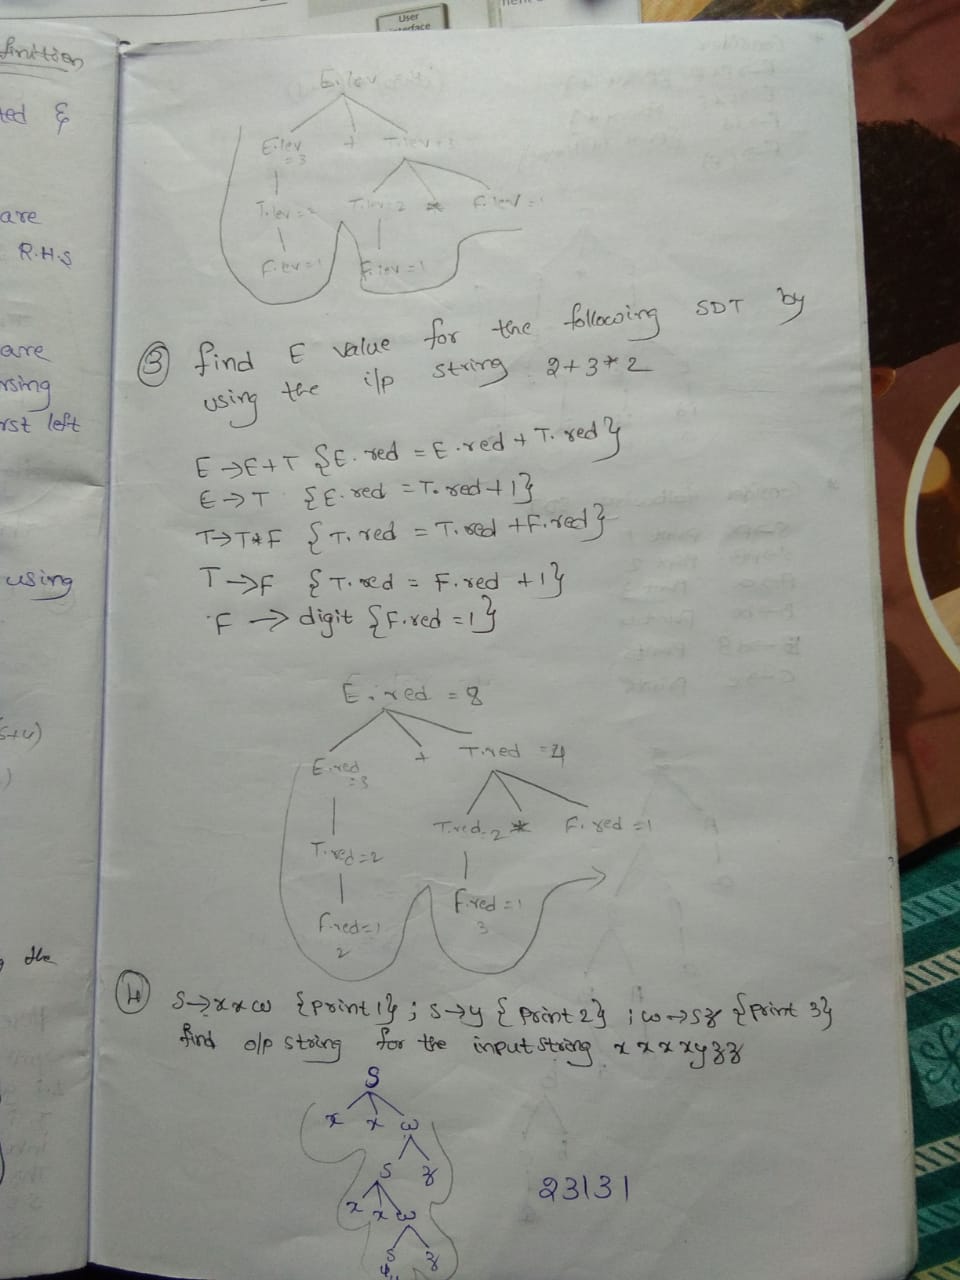 User
interface
finition
ted &
are
R.H.S
are
rsing
rst left
using
the
E.lev
E.lev + T.lev = 3
= 3
T.lev = 2 T.lev = 2 * F.lev = 1
F.lev = 1 F.lev = 1
③ find E value for the following SDT by
using the i/p string 2+3*2
E → E+T {E.red = E.red + T.red}
E → T {E.red = T.red+1}
T → T*F {T.red = T.red + F.red}
T → F {T.red = F.red +1}
F → digit {F.red = 1}
E.red = 8
E.red + T.red = 4
= 3
T.red = 2 * F.red = 1
T.red = 2
F.red = 1
3
F.red = 1
2
④ S → xxw {print 1} ; S → y {print 2} ; w → Sz {print 3}
find o/p string for the input string xxxxyzz
S
x x w
S z
x x w
S z
y
23131